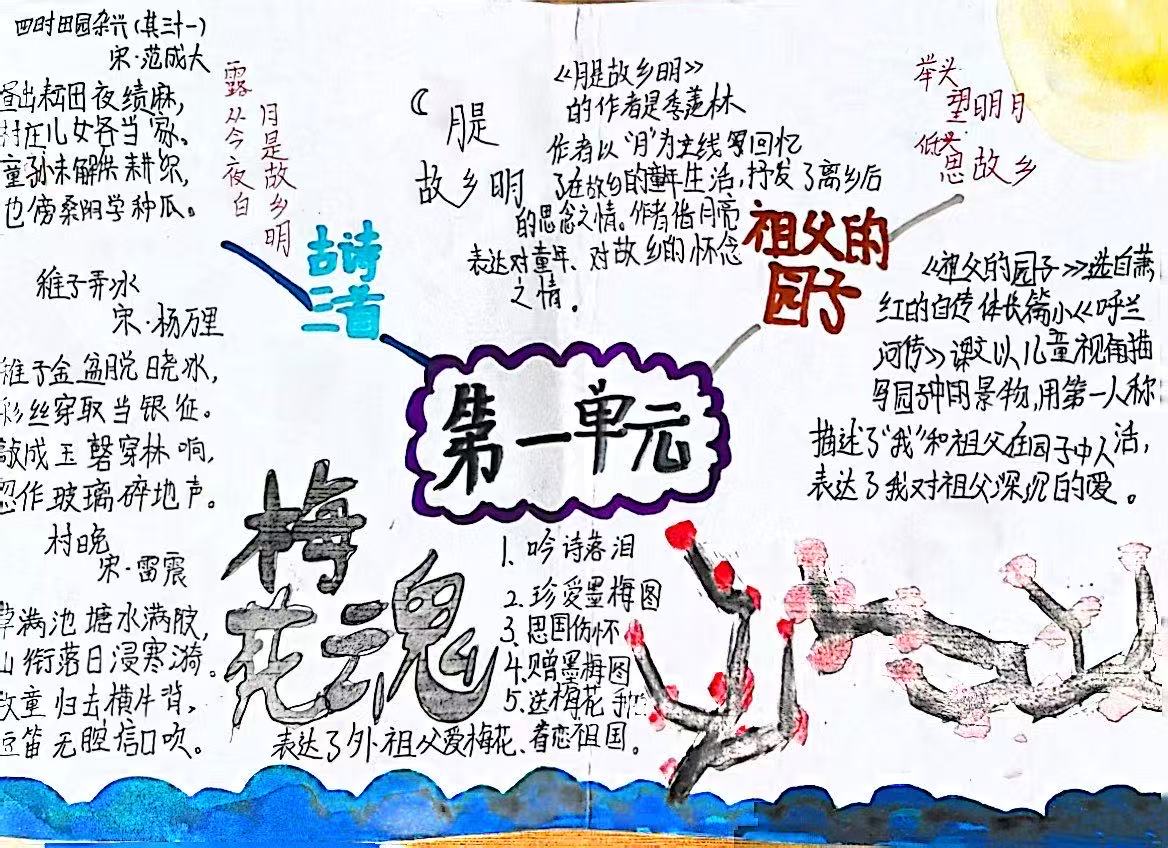 四时田园杂兴(其三十一)
宋·范成大
昼出耘田夜绩麻,
村庄儿女各当家。
童孙未解供耕织,
也傍桑阴学种瓜。
露从今夜白
月是故乡明
稚子弄冰
宋·杨万里
稚子金盆脱晓冰,
彩丝穿取当银钲。
敲成玉磬穿林响,
忽作玻璃碎地声。
村晚
宋·雷震
草满池塘水满陂,
山衔落日浸寒漪。
牧童归去横牛背,
短笛无腔信口吹。
古诗
三首
月是
故乡明
《月是故乡明》
的作者是季羡林
作者以“月”为主线写回忆
了在故乡的童年生活,抒发了离乡后
的思念之情。作者借月亮
表达对童年、对故乡的怀念
之情。
举头
望明月
低头
思故乡
祖父的
园子
《祖父的园子》选自萧
红的自传体长篇小《呼兰
河传》课文以儿童视角描
写园子中的景物,用第一人称
描述了“我”和祖父在园子中人活,
表达了我对祖父深沉的爱。
第一单元
梅
花魂
1. 吟诗落泪
2. 珍爱墨梅图
3. 思国伤怀
4. 赠墨梅图
5. 送梅花手
表达了外祖父爱梅花、眷恋祖国。